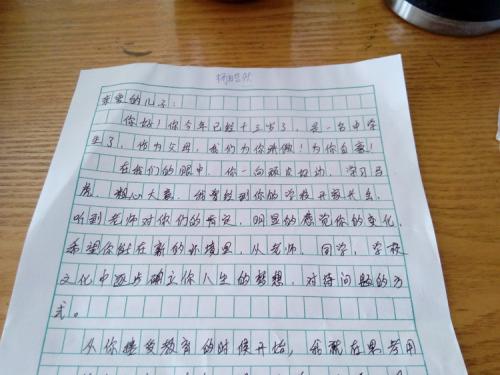 亲爱的儿子：
你好！你今年已经十三岁了，是一名中学
生了，作为父母，我们为你骄傲！为你自豪！
在我们的眼中，你一向顽皮好动，学习马
虎，粗心大意，我曾经到你的学校开家长会，
听到老师对你们的肯定，明显的感觉你的变化，
希望你能在新的环境里，从老师、同学、学校
文化中逐步确立你人生的梦想，对待问题的方
式。
从你接受教育的时候开始，我就在思考用